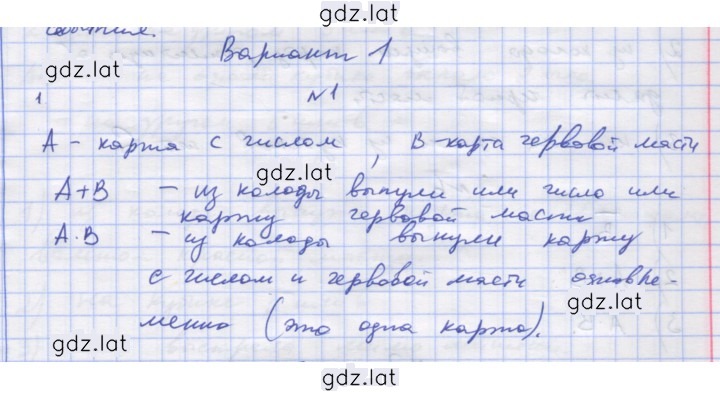 gdz.lat
события.
Вариант 1
gdz.lat
1 №1
А - карта с числом, В - карта червовой масти
gdz.lat
А+В - из колоды вынули или число или
карту червовой масти
А·В - из колоды вынули карту
с числом и червовой масти одновре-
gdz.lat
менно (это одна карта).
gdz.lat
gdz.lat